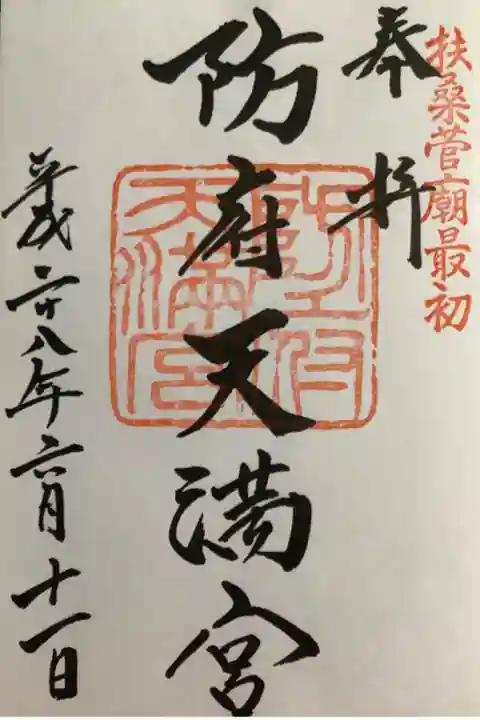 扶桑菅廟最初
奉拝
防府天満宮
平成二十八年六月十一日